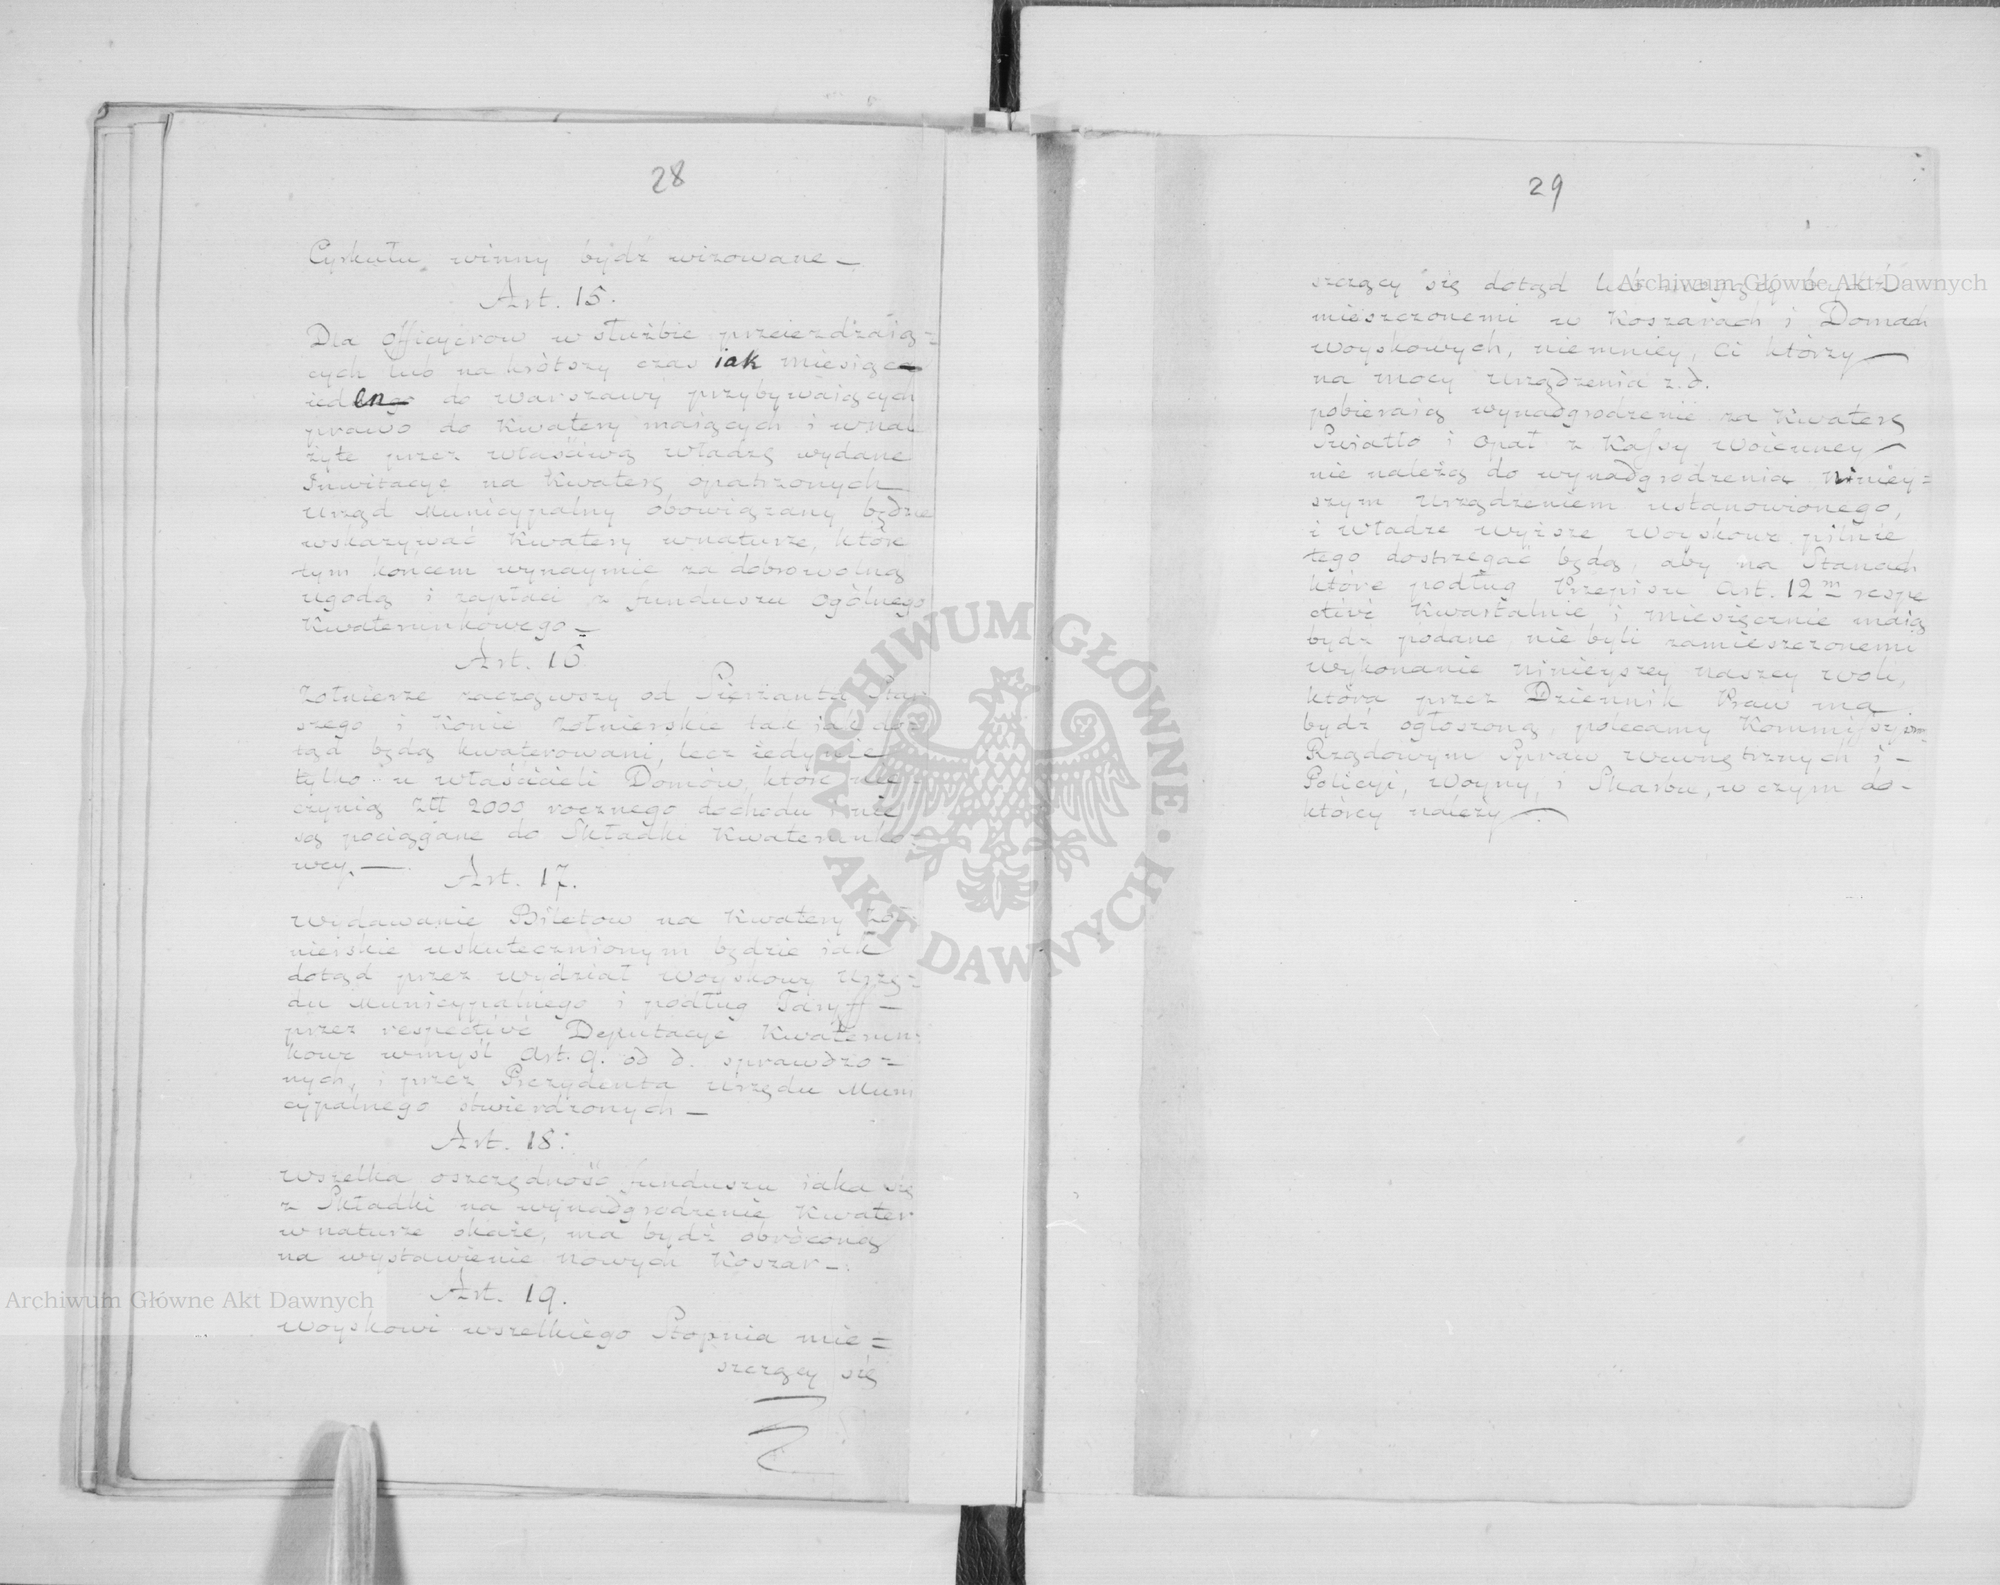 28
Cyrkułu winny bydź wizowane –
Art. 15.
Dla Officyerow w służbie przeiezdzaią=
cych lub na krótszy czas iak miesiąc
do Warszawy przybywaiących
prawo do Kwatery maiących i wna
żyte przez właściwą władzę wydane
Inwitacye na Kwaterę opatrzonych
Urząd Municypalny obowiązany będzie
wskazywać Kwatery wnaturze, które
tym końcem wynaymie za dobrowolną
ugodą i zapłaci z funduszu ogólnego
Kwaterunkowego –
Art. 16
Żołnierze zacząwszy od Sierżanta Star
szego i Konie żołnierskie tak iak do=
tąd będą kwaterowani, lecz iedynie
tylko u właścicieli Domów, które nie
czynią Złł 2000 rocznego dochodu i nie
są pociągane do Składki Kwaterunko=
wey. –
Art. 17.
Wydawanie Biletow na Kwatery Żoł
nierskie uskutecznionym będzie iak
dotąd przez wydział Woyskowy Urzę=
du Municypalnego i podług Taryff –
przez respective Deputacye Kwaterun=
kowe wmyśl Art. 9. od d. sprawdzo=
nych, i przez Prezydenta Urzędu Muni
cypalnego stwierdzonych –
Art. 18:
Wszelka oszczędność funduszu iaka się
z Składki na wynadgrodzenie Kwater
wnaturze okaże, ma bydź obrócona
na wystawienie nowych Koszar –.
Art. 19.
Woyskowi wszelkiego Stopnia mie=
szczący się
29
szczący się dotąd lub
mieszczonemi w Koszarach i Domach
woyskowych, niemniey, Ci którzy
na mocy urządzenia z. d.
pobieraią wynadgrodzenie za Kwaterę
Światło i Opał z Kassy Woienney –
nie należą do wynadgrodzenia niniey=
szym urządzeniem ustanowionego,
i Władze wyższe Woyskowe pilnie
tego dostrzegać będą, aby na Stanach
które podług Przepisu Art. 12m respe
ctive Kwartalnie i miesięcznie maią
bydź podane nie byli zamieszczonemi
wykonanie ninieyszey naszey woli,
która przez Dziennik Praw ma
bydź ogłoszoną, polecamy Kommissyom
Rządowym Spraw wewnętrznych i –
Policyi, Woyny, i Skarbu, w czym do-
którey należy
Archiwum Główne Akt Dawnych
Archiwum Główne Akt Dawnych
ARCHIWUM GŁÓWNE · AKT DAWNYCH ·